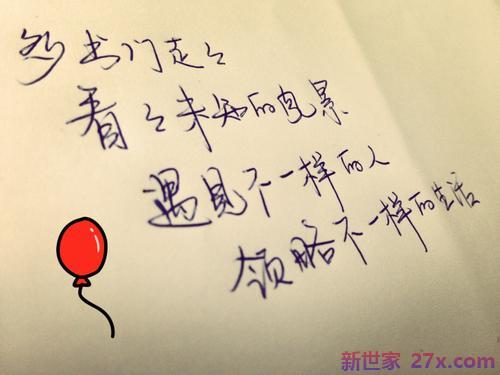 多出门走走
看看未知的光景
遇见不一样的人
领略不一样的生活
新世家 27x.com